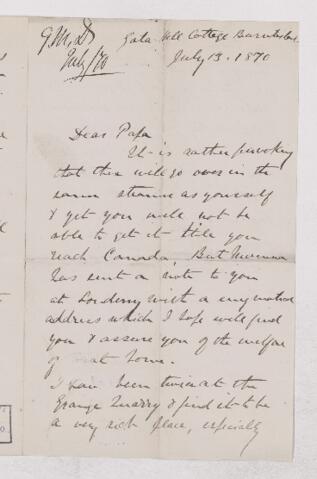 G.M.D
July/70
Gala Hill Cottage Burntisland
July 13. 1870
Dear Papa
It is rather provoking
that this will go over in the
same steamer as yourself
& yet you will not be
able to get it till you
reach Canada. But Mamma
has sent on note to you
at Londonderry with a
address which I hope will find
you & assure you of the welfare
of at home.
I have been twice at the
Grange Quarry & find it to be
a very rich place, especially